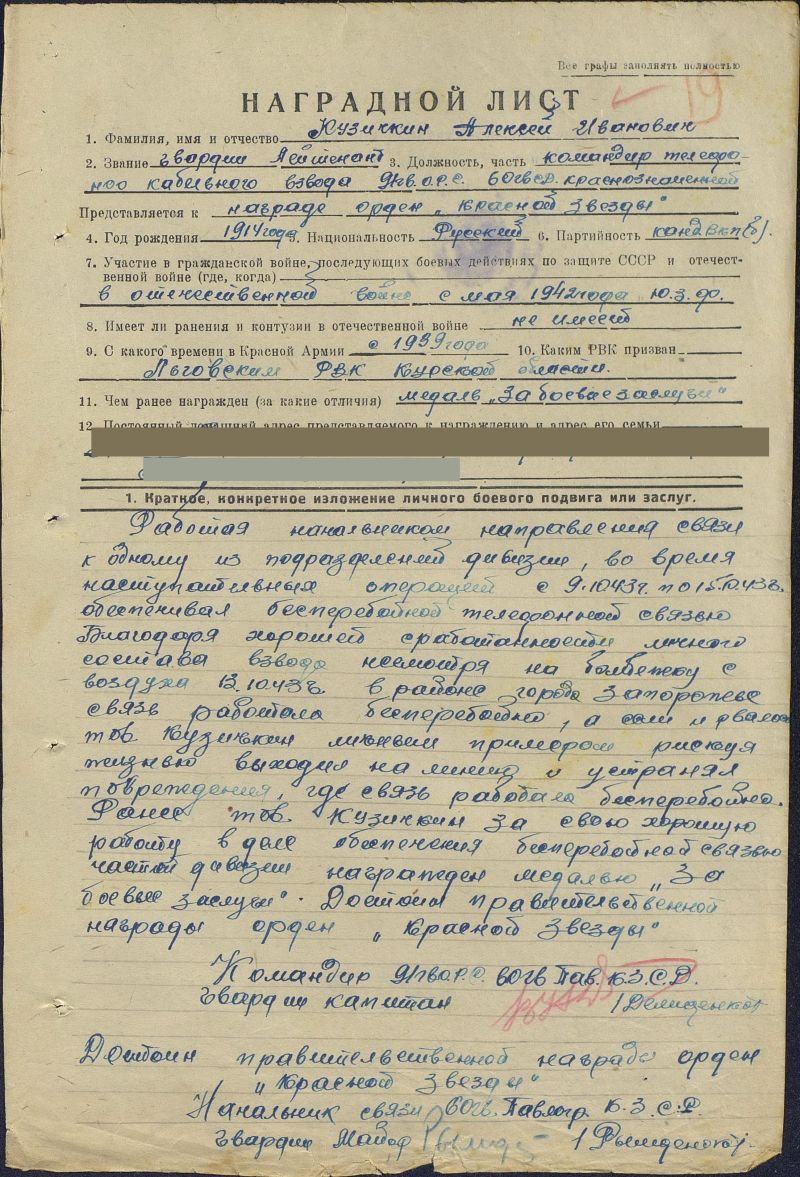 Все графы заполнять полностью
19
НАГРАДНОЙ ЛИСТ
1. Фамилия, имя и отчество Кузичкин Алексей Иванович
2. Звание Гвардии Лейтенант 3. Должность, часть командир телефо-
нно кабельного взвода 91гв.О.Р.С. 60гв.с.д. краснознаменной
Представляется к награде орден „Красной Звезды"
4. Год рождения 1914 года 5. Национальность Русский 6. Партийность канд. ВКП(б).
7. Участие в гражданской войне, последующих боевых действиях по защите СССР и отечест-
венной войне (где, когда)
в отечественной войне с мая 1942 года Ю.З.Фр.
8. Имеет ли ранения и контузии в отечественной войне не имеет
9. С какого времени в Красной Армии с 1939 года 10. Каким РВК призван
Льговским РВК Курской области.
11. Чем ранее награжден (за какие отличия) медаль „За боевые заслуги"
12. Постоянный домашний адрес представляемого к награждению и адрес его семьи
1. Краткое, конкретное изложение личного боевого подвига или заслуг.
Работая начальником направления связи
к одному из подразделений дивизии, во время
наступательных операций с 9.10.43г. по 15.10.43г.
обеспечивал бесперебойной телефонной связью
Благодаря хорошей сработанности личного
состава взвода несмотря на бомбежку с
воздуха 13.10.43г. в районе города Запорожье
связь работала бесперебойно, а сам
тов. Кузичкин личным примером рискуя
жизнью выходил на линию и устранял
повреждения, где связь работала бесперебойно.
Ранее тов. Кузичкин за свою хорошую
работу в деле обеспечения бесперебойной связью
частей дивизии награжден медалью „За
боевые заслуги". Достоин правительственной
награды орден „Красной Звезды"
Командир 91гв.О.Р.С. 60гв Пав. К.З.С.Д.
Гвардии капитан
Достоин правительственной награды орден
„Красной Звезды"
Начальник связи 60гв. Павлогр. К.З.С.Д.
Гвардии Майор